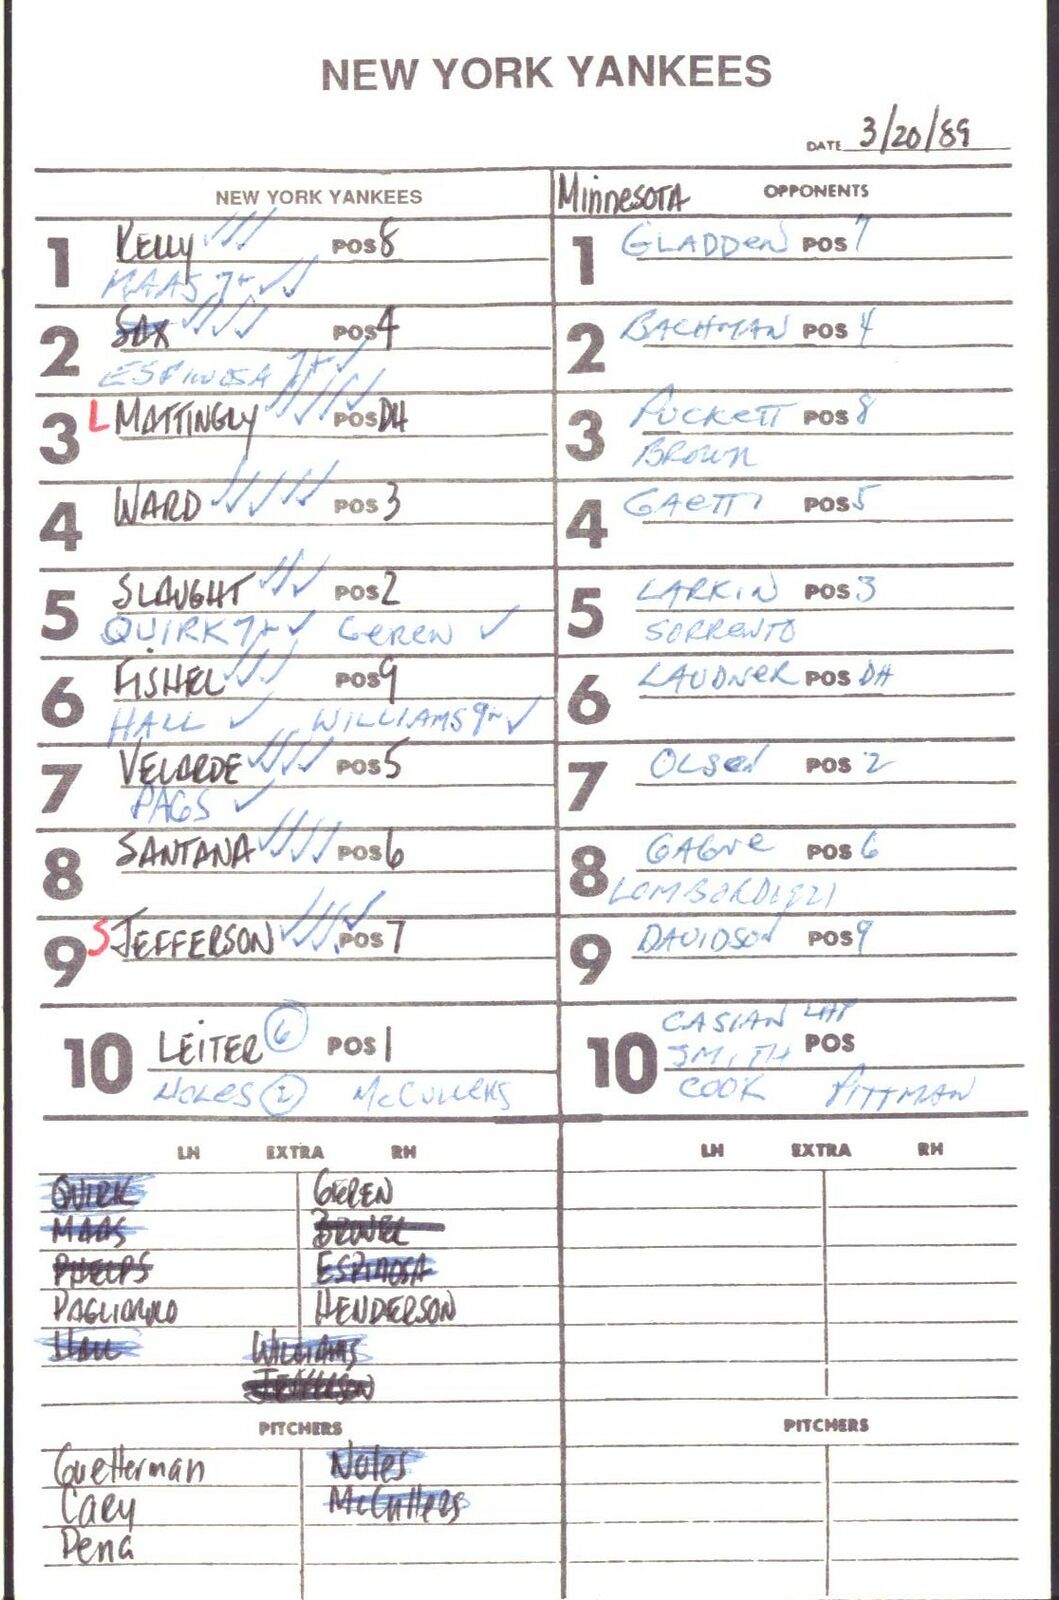 NEW YORK YANKEES
DATE 3/20/89
NEW YORK YANKEES
1 KELLY POS 8
MAAS 7+
2 SAX POS 4
ESPINOSA 7+
3 L MATTINGLY POS DH
4 WARD POS 3
5 SLAUGHT POS 2
QUIRK 7+ GEREN
6 FISHEL POS 9
HALL WILLIAMS 9
7 VELARDE POS 5
PAGS
8 SANTANA POS 6
9 S JEFFERSON POS 7
10 LEITER 6 POS 1
NOLES 2 McCULLERS
LH EXTRA RH
QUIRK GEREN
MAAS
PHELPS ESPINOSA
PAGLIARULO HENDERSON
HALL WILLIAMS
JEFFERSON
PITCHERS
Guetterman Noles
Cary McCullers
Pena
Minnesota OPPONENTS
1 GLADDEN POS 7
2 BACHMAN POS 4
3 PUCKETT POS 8
BROWN
4 GAETTI POS 5
5 LARKIN POS 3
SORRENTO
6 LAUDNER POS DH
7 OLSEN POS 2
8 GAGNE POS 6
LOMBORDOZZI
9 DAVIDSON POS 9
CASIAN
10 SMITH POS
COOK PITTMAN
LH EXTRA RH
PITCHERS